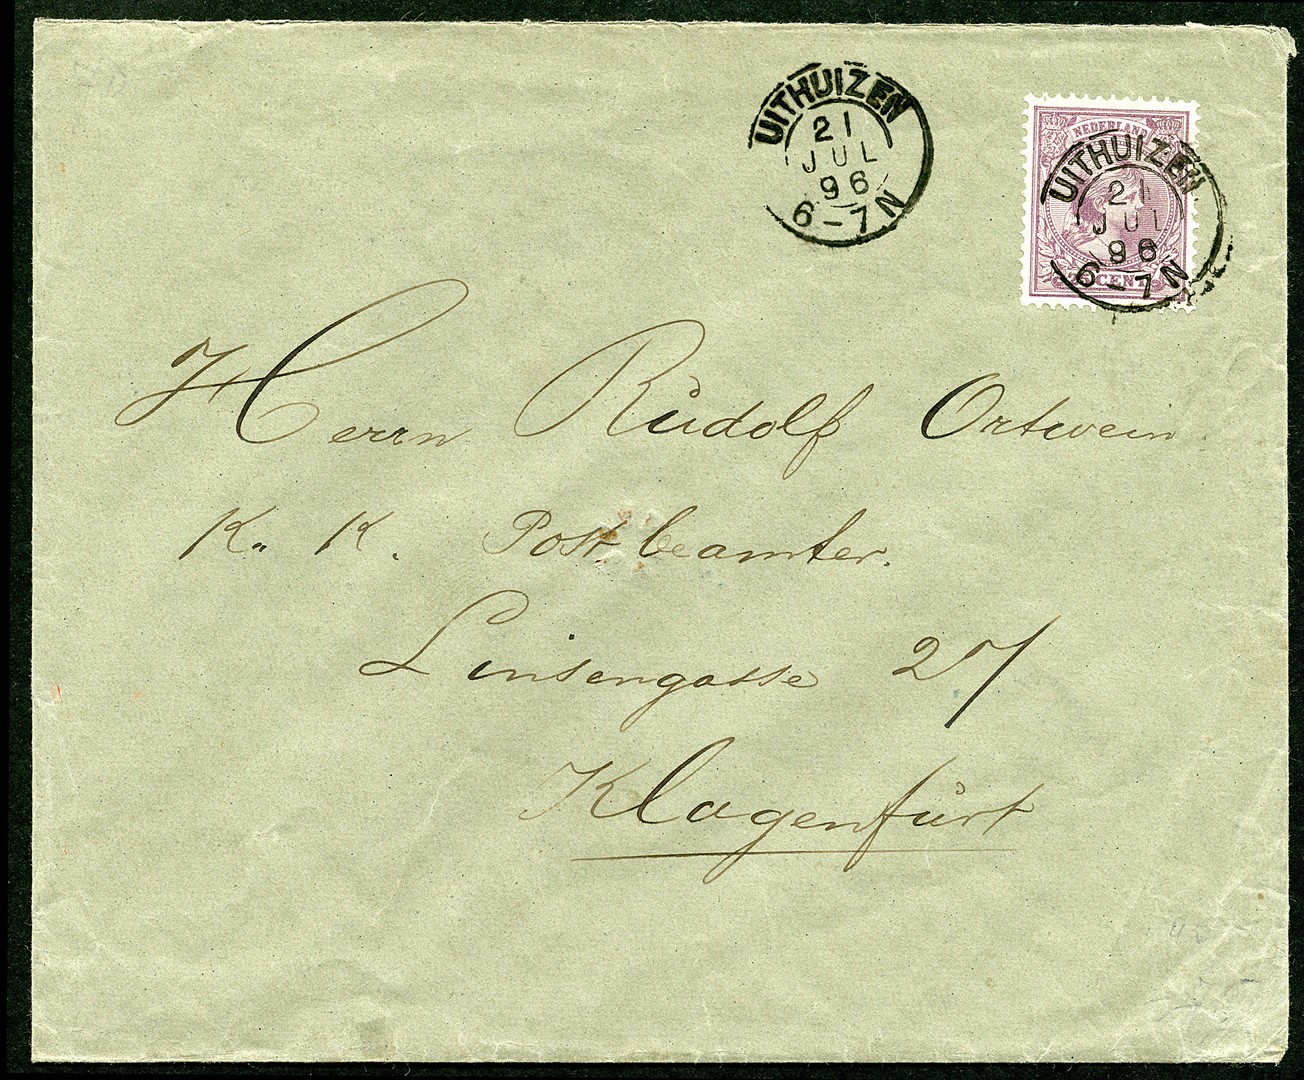 UITHUIZEN
21
JUL
96
6-7N
NEDERLAND
UITHUIZEN
21
JUL
96
6-7N
CENT
Herrn Rudolf Ortwein
K. K. Postbeamter.
Linsengasse 27/
Klagenfurt